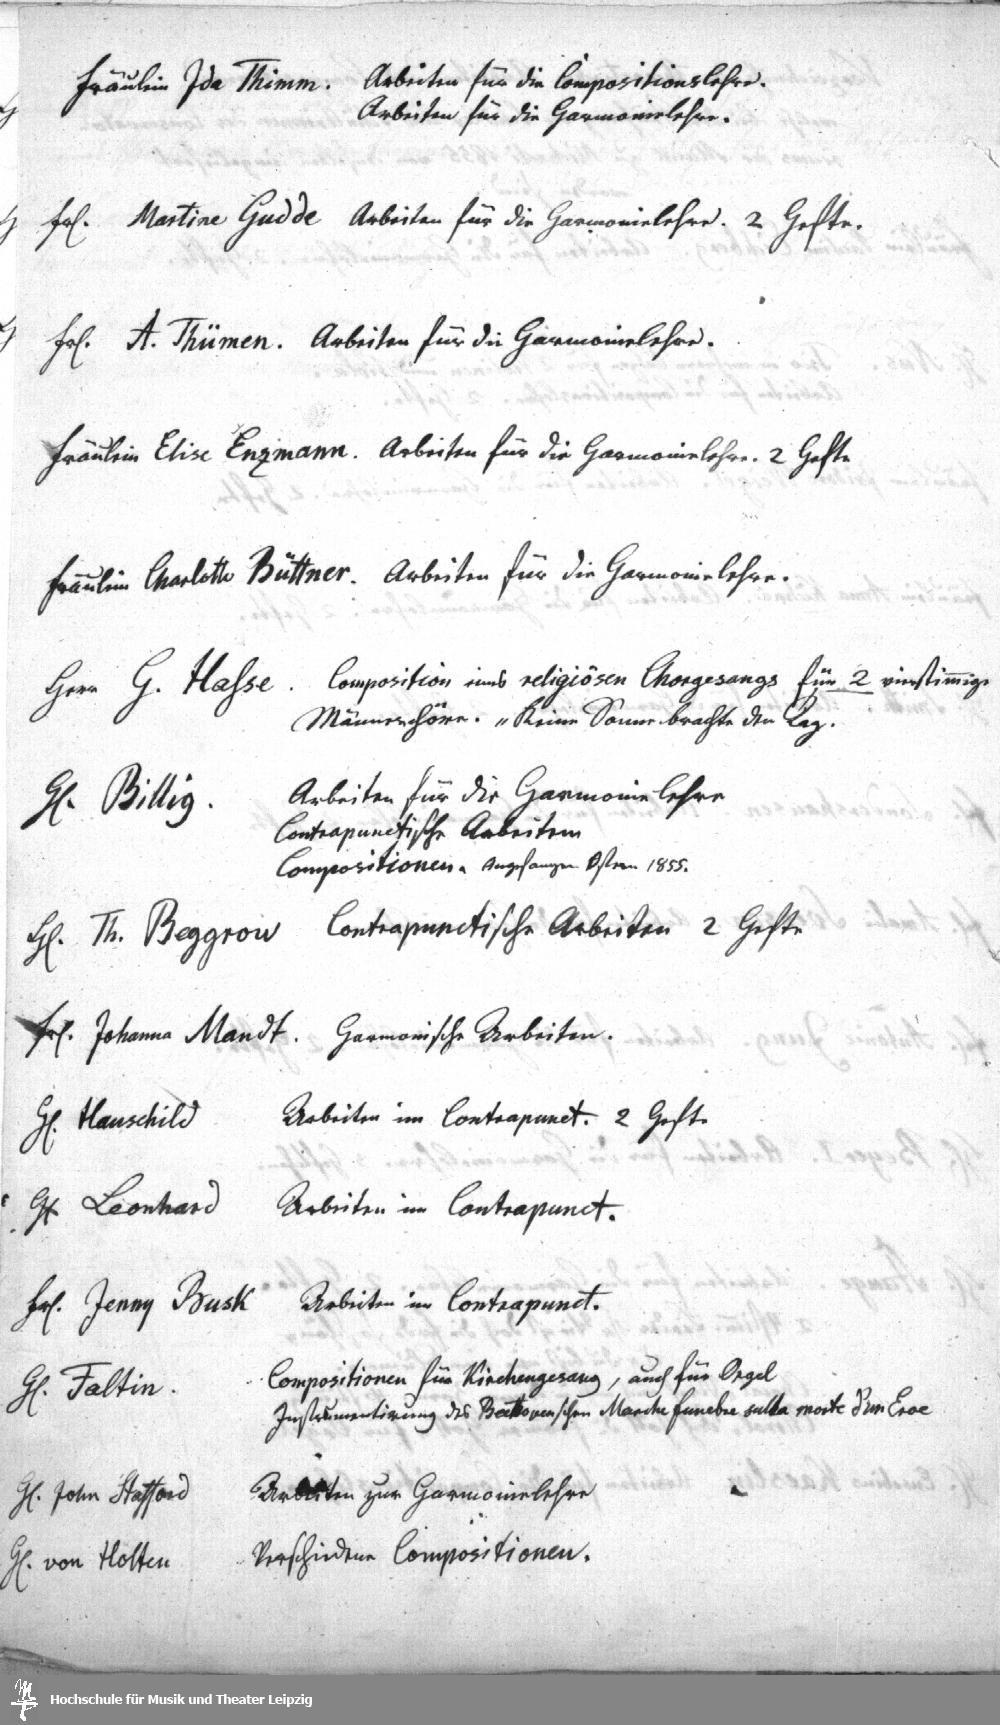 Fräulein Ida Thimm. Arbeiten für die Compositionslehre.
Arbeiten für die Harmonielehre.
Frl. Martine Hudde Arbeiten für die Harmonielehre. 2 Hefte.
Frl. A. Thümen. Arbeiten für die Harmonielehre.
Fräulein Elise Enzmann. Arbeiten für die Harmonielehre. 2 Hefte
Fräulein Charlotte Büttner. Arbeiten für die Harmonielehre.
Herr G. Hasse. Composition eines religiösen Chorgesangs für 2 vierstimmige
Männerchöre. „Keine Sonne brachte den Tag.
H. Billig. Arbeiten für die Harmonielehre
Contrapunctische Arbeiten
Compositionen. Angefangen Ostern 1855.
H. Th. Beggrow Contrapunctische Arbeiten 2 Hefte
Frl. Johanna Mandt. Harmonische Arbeiten.
H. Hauschild Arbeiten im Contrapunct. 2 Hefte
H. Leonhard Arbeiten im Contrapunct.
Frl. Jenny Busk Arbeiten im Contrapunct.
H. Faltin. Compositionen für Kirchengesang, auch für Orgel
Instrumentirung des Beethovenschen Marcha funebre sulla morte d'un Eroe
H. John Stafford Arbeiten zur Harmonielehre
H. von Holten Verschiedene Compositionen.
Hochschule für Musik und Theater Leipzig